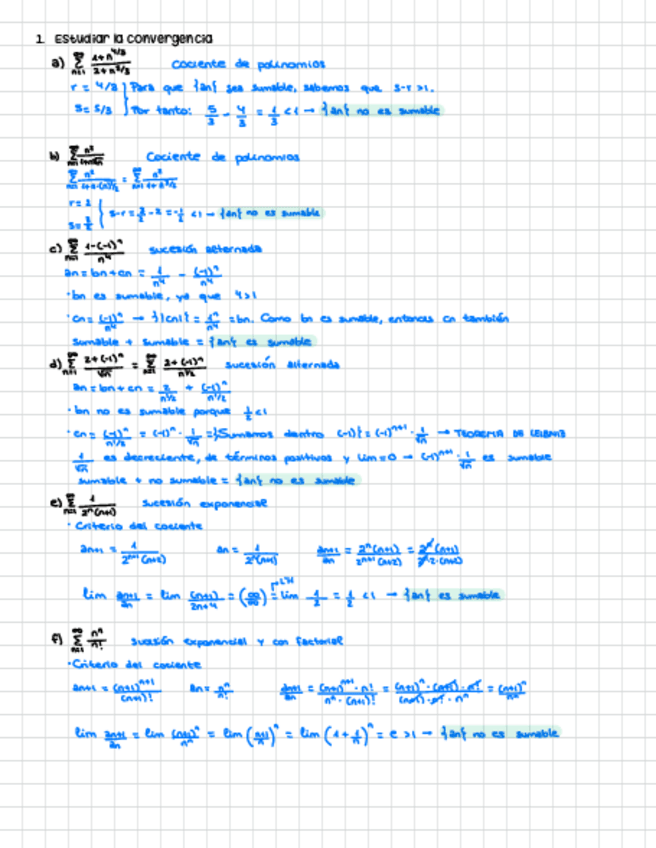 1. Estudiar la convergencia
a) ∑_{n=1}^{∞} (1+n^{4/3})/(2+n^{5/3}) Cociente de polinomios
r = 4/3 } Para que {an} sea sumable, sabemos que s-r>1.
s = 5/3 } Por tanto: 5/3 - 4/3 = 1/3 <1 → {an} no es sumable
b) Cociente de polinomios
r=2
s=3/2 } s-r = 3/2 - 2 = -1/2 <1 → {an} no es sumable
c) ∑_{n=1}^{∞} (1-(-1)^n)/n^4 sucesión alternada
an = bn+cn = 1/n^4 - (-1)^n/n^4
· bn es sumable, ya que 4>1
· cn = (-1)^n/n^4 → {|cn|} = 1/n^4 = bn. Como bn es sumable, entonces cn también
sumable + sumable = {an} es sumable
d) ∑_{n=1}^{∞} (2+(-1)^n)/√n = ∑_{n=1}^{∞} (2+(-1)^n)/n^{1/2} sucesión alternada
an = bn+cn = 2/n^{1/2} + (-1)^n/n^{1/2}
· bn no es sumable porque 1/2 <1
· cn = (-1)^n/n^{1/2} = (-1)^n · 1/√n = {Sumamos dentro (-1)} = (-1)^{n+1} · 1/√n → TEOREMA DE LEIBNIZ
1/√n es decreciente, de términos positivos y lim=0 → (-1)^{n+1} · 1/√n es sumable
sumable + no sumable = {an} no es sumable
e) ∑_{n=1}^{∞} 1/(2^n(n+1)) sucesión exponencial
· Criterio del cociente
an+1 = 1/(2^{n+1}(n+2)) an = 1/(2^n(n+1)) an+1/an = 2^n(n+1)/(2^{n+1}(n+2)) = 2^n(n+1)/(2^n·2·(n+2))
lim an+1/an = lim (n+1)/(2n+4) = (∞/∞) = L'H lim 1/2 = 1/2 <1 → {an} es sumable
f) ∑_{n=1}^{∞} n^n/n! sucesión exponencial y con factorial
· Criterio del cociente
an+1 = (n+1)^{n+1}/(n+1)! an = n^n/n! an+1/an = (n+1)^{n+1}·n!/(n^n·(n+1)!) = (n+1)^n·(n+1)·n!/((n+1)·n!·n^n) = (n+1)^n/n^n
lim an+1/an = lim (n+1)^n/n^n = lim ((n+1)/n)^n = lim (1+1/n)^n = e >1 → {an} no es sumable